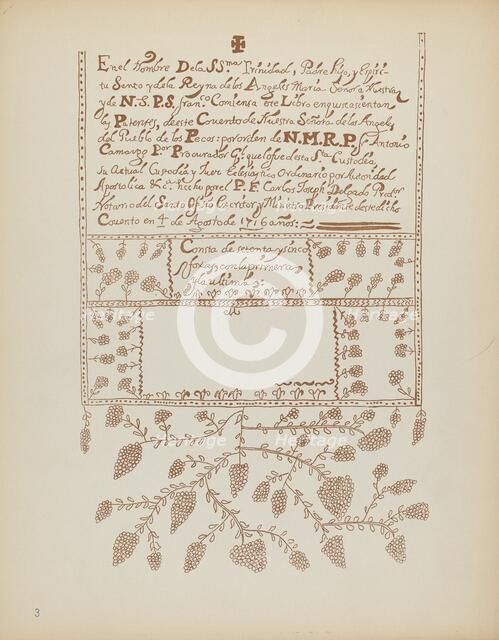 En el Nombre Dela SS.ma Trinidad, Padre Hijo, y Espiri-
tu Santo y dela Reyna de los Angeles Maria Señora Nuestra
y de N.S.P.S. Franco. Comiensa este Libro en que se asientan
las Patentes, de este Convento de Nuestra Señora de los Angeles
del Pueblo de los Pecos: por orden de N.M.R.P. Fr. Antonio
Camargo Por Procurador Gl. que lo fue de esta Sta. Custodia,
su Actual Custodio y Juez Eclesiastico Ordinario por Autoridad
Apostolica &ca. hecho por el P. F. Carlos Joseph Delgado Predor.
Notario del Santo Oficio Escritor y Ministro Presidente de dicho
Convento en 4 de Agosto de 1716 años:
Consta de setenta y sinco
foxas con la primera
y la ultima:
Heritage
Heritage
3